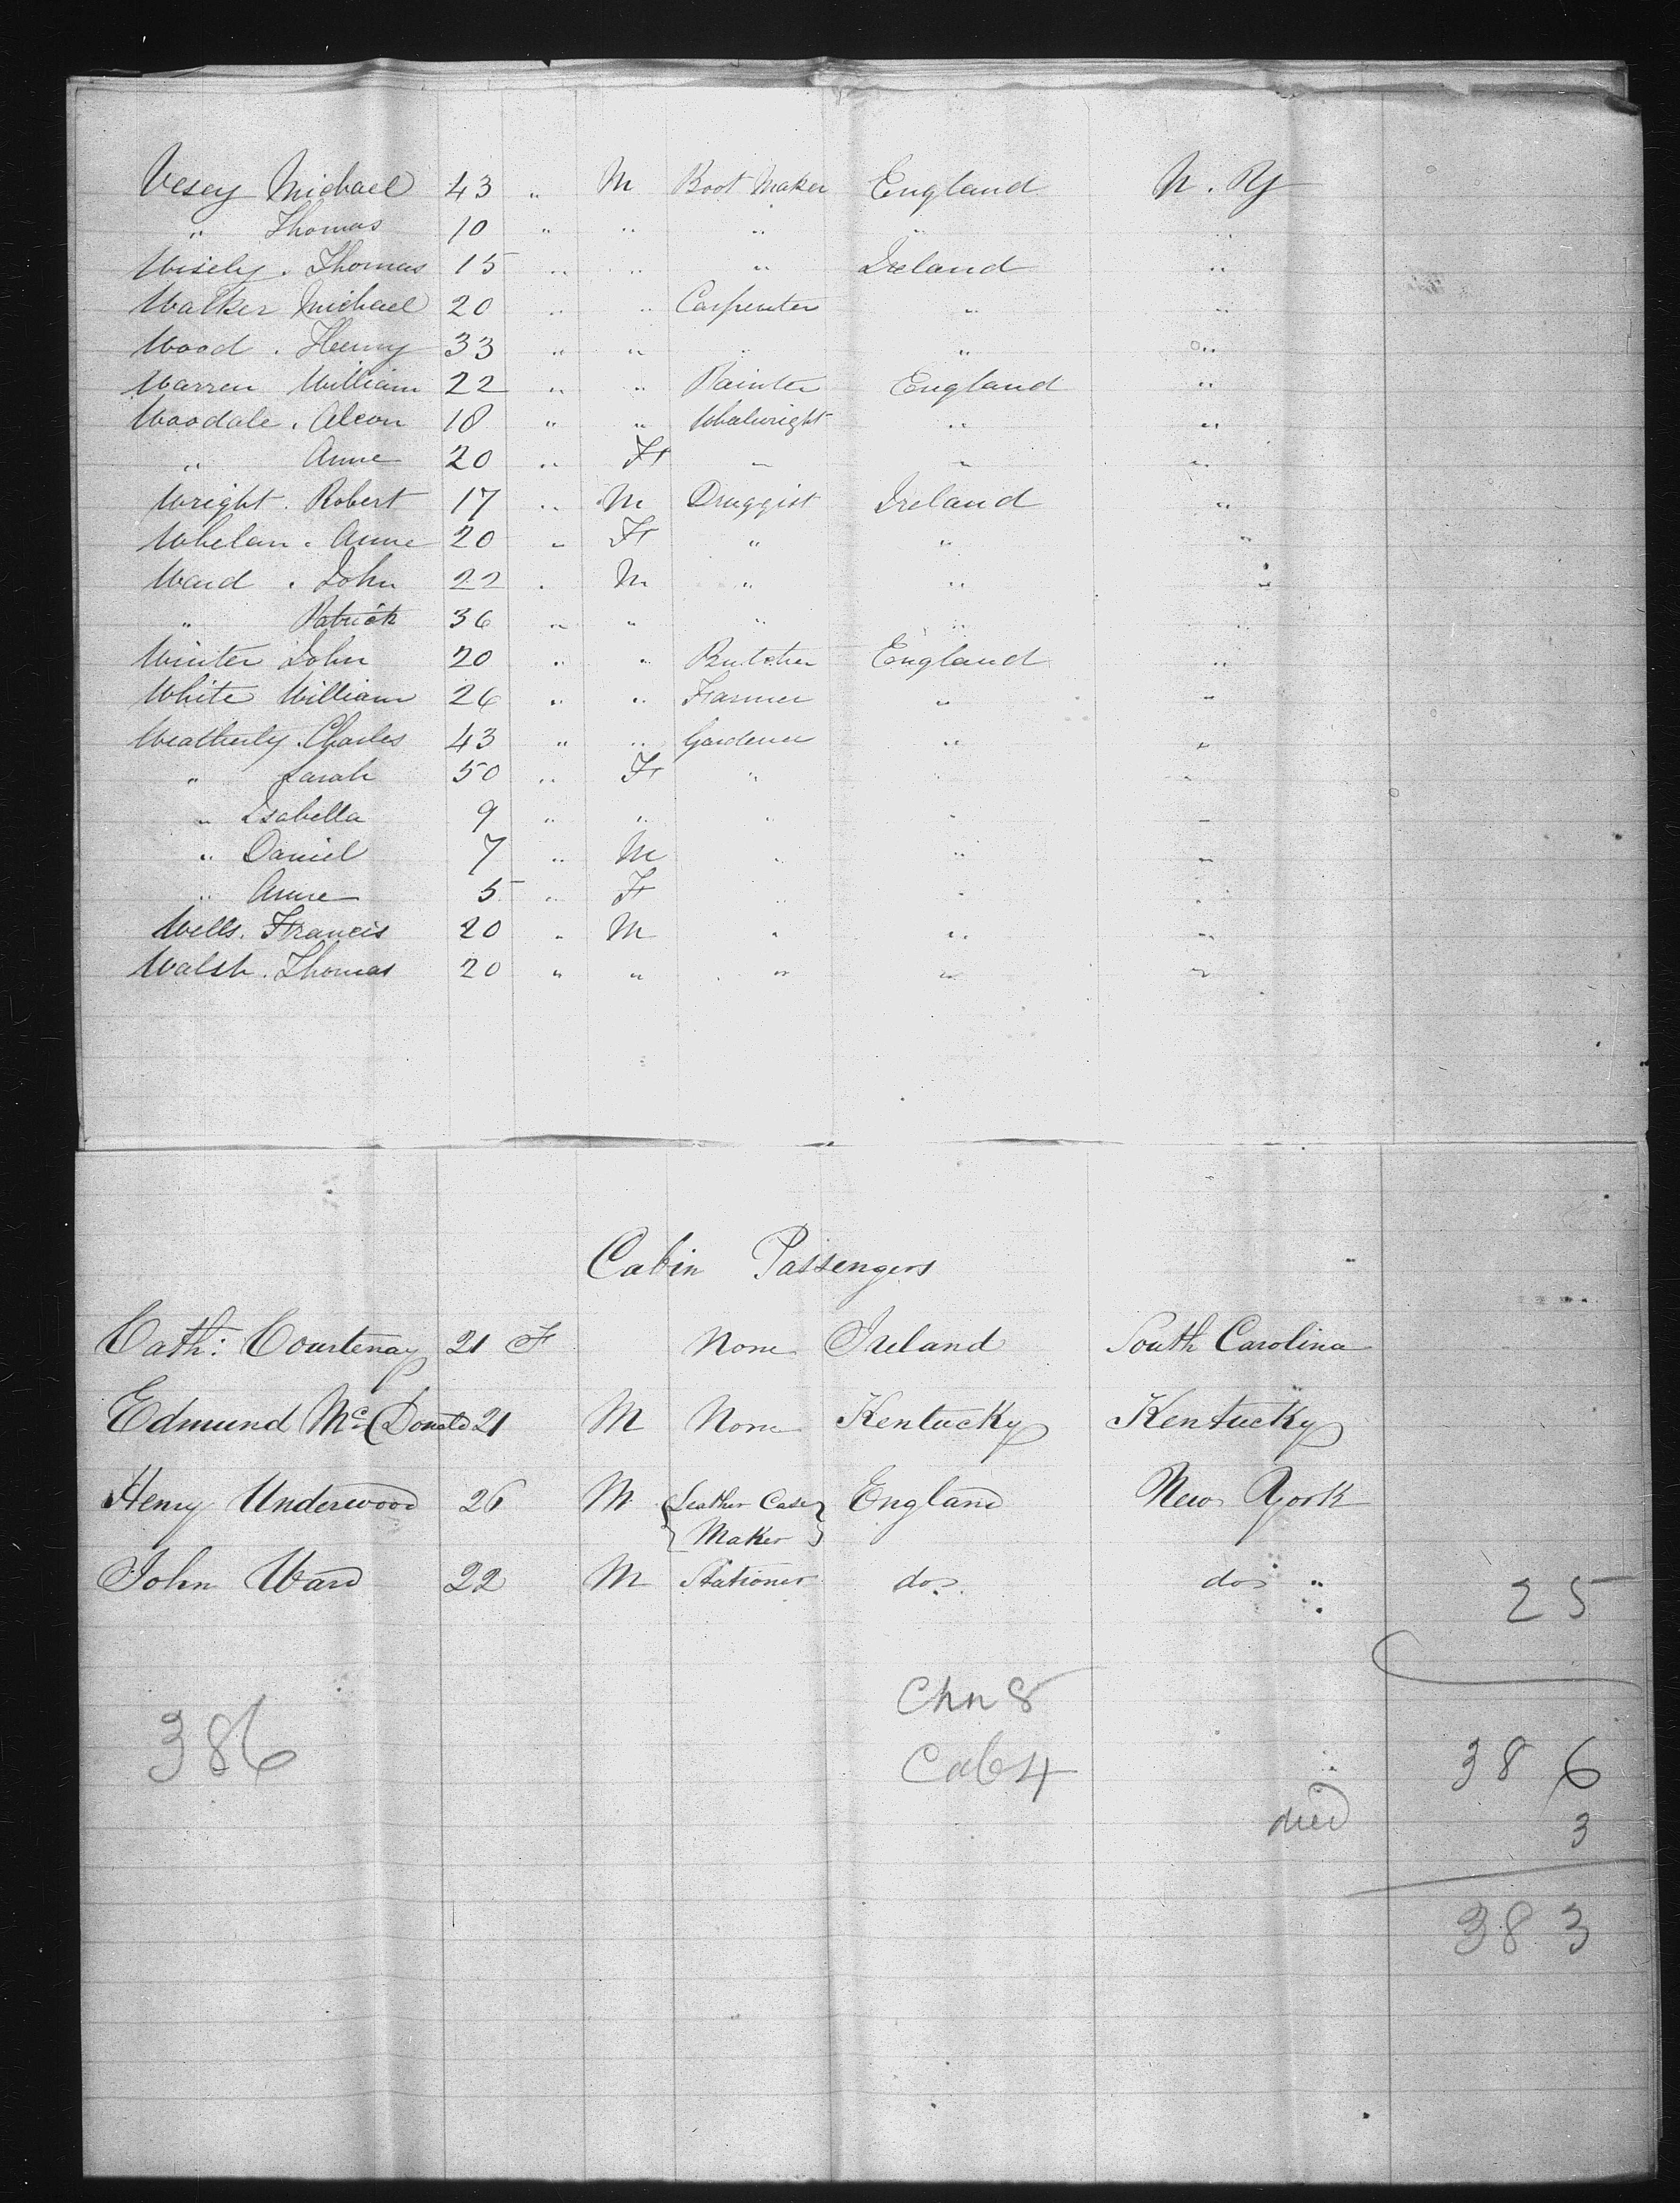 Vesey Michael 43 " M Boot Maker England N. Y
" Thomas 10 " " " " "
Wisely. Thomas 15 " " " Ireland "
Walker Michael 20 " " Carpenter " "
Wood. Henry 33 " " " " "
Warren William 22 " " Painter England "
Woodale. 18 " " Whalwright " "
" Anne 20 " F " " "
Wright. Robert 17 " M Druggist Ireland "
Whelan. Anne 20 " F " " "
Ward. John 22 " M " " "
" Patrick 36 " " " " "
Winter John 20 " " Butcher England "
White William 26 " " Farmer " "
Weatherly. Charles 43 " " Gardener " "
" Sarah 50 " F " " "
" Isabella 9 " " " " "
" Daniel 7 " M " " "
" Anne 5 " F " " "
Wells. Francis 20 " M " " "
Walsh. Thomas 20 " " " " "
Cabin Passengers
Cath: Courtenay 21 F None Ireland South Carolina
Edmund Mc Donald 21 M None Kentucky Kentucky
Henry Underwood 26 M Leather Case England New York
Maker
John Ward 22 M Stationer do. do "
25
Chn 8
386 Cab 4 386
died 3
383